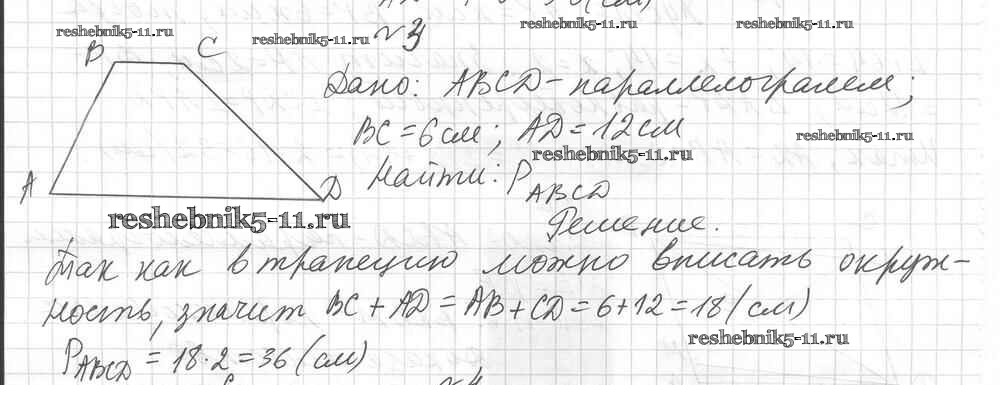 reshebnik5-11.ru reshebnik5-11.ru
reshebnik5-11.ru reshebnik5-11.ru
№3
B C
Дано: ABCD - параллелограмм;
BC = 6 см; AD = 12 см
reshebnik5-11.ru
reshebnik5-11.ru
Найти: P ABCD
A D
reshebnik5-11.ru
Решение.
Так как в трапецию можно вписать окруж-
ность, значит BC + AD = AB + CD = 6 + 12 = 18 (см)
reshebnik5-11.ru
P ABCD = 18 · 2 = 36 (см)
№4